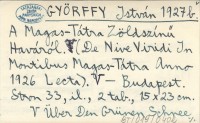 GYÖRFFY István 1927.b
A Magas-Tátra Zöldszínű
Haváról (De Nive Viridi In
Montibus Magas-Tátra Anno
1926 Lecta). V – Budapest.
33, il., 2 tab., 15x23 cm.
V Über Den Grünen Schnee